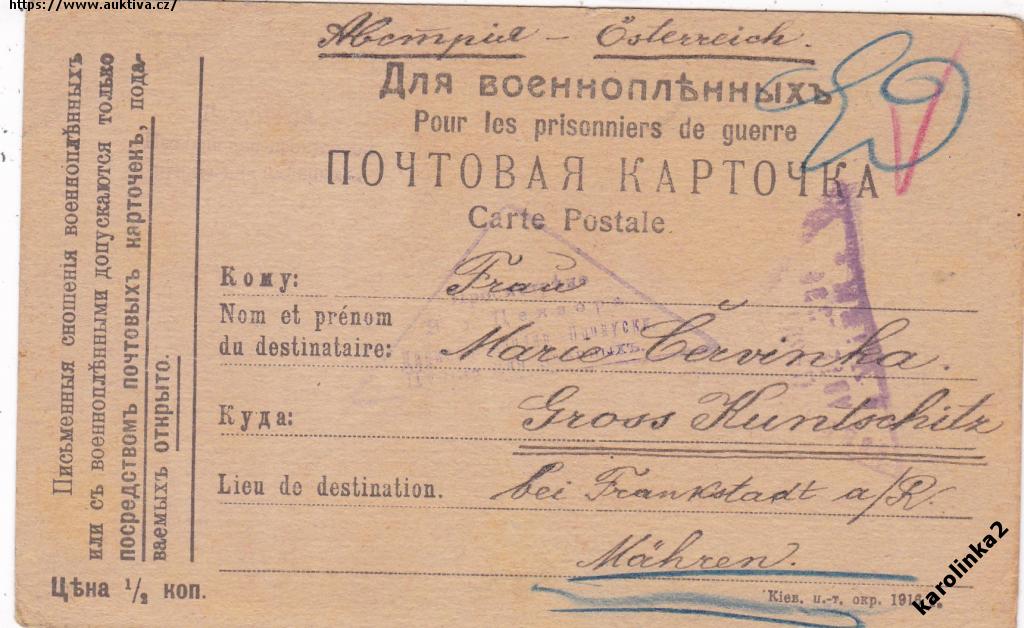 https://www.auktiva.cz/
Австрія – Österreich.
Для военноплѣнныхъ
Pour les prisonniers de guerre
ПОЧТОВАЯ КАРТОЧКА
Carte Postale.
Письменныя сношенія военноплѣнныхъ
или съ военноплѣнными допускаются только
посредствомъ почтовыхъ карточекъ, пода-
ваемыхъ открыто.
Цѣна ½ коп.
Кому: Frau
Nom et prénom
du destinataire: Marie Červinka.
Куда: Gross Kuntschitz
Lieu de destination. bei Frankstadt a/R.
Mähren.
Кіев. и.-т. окр. 1916
karolinka2